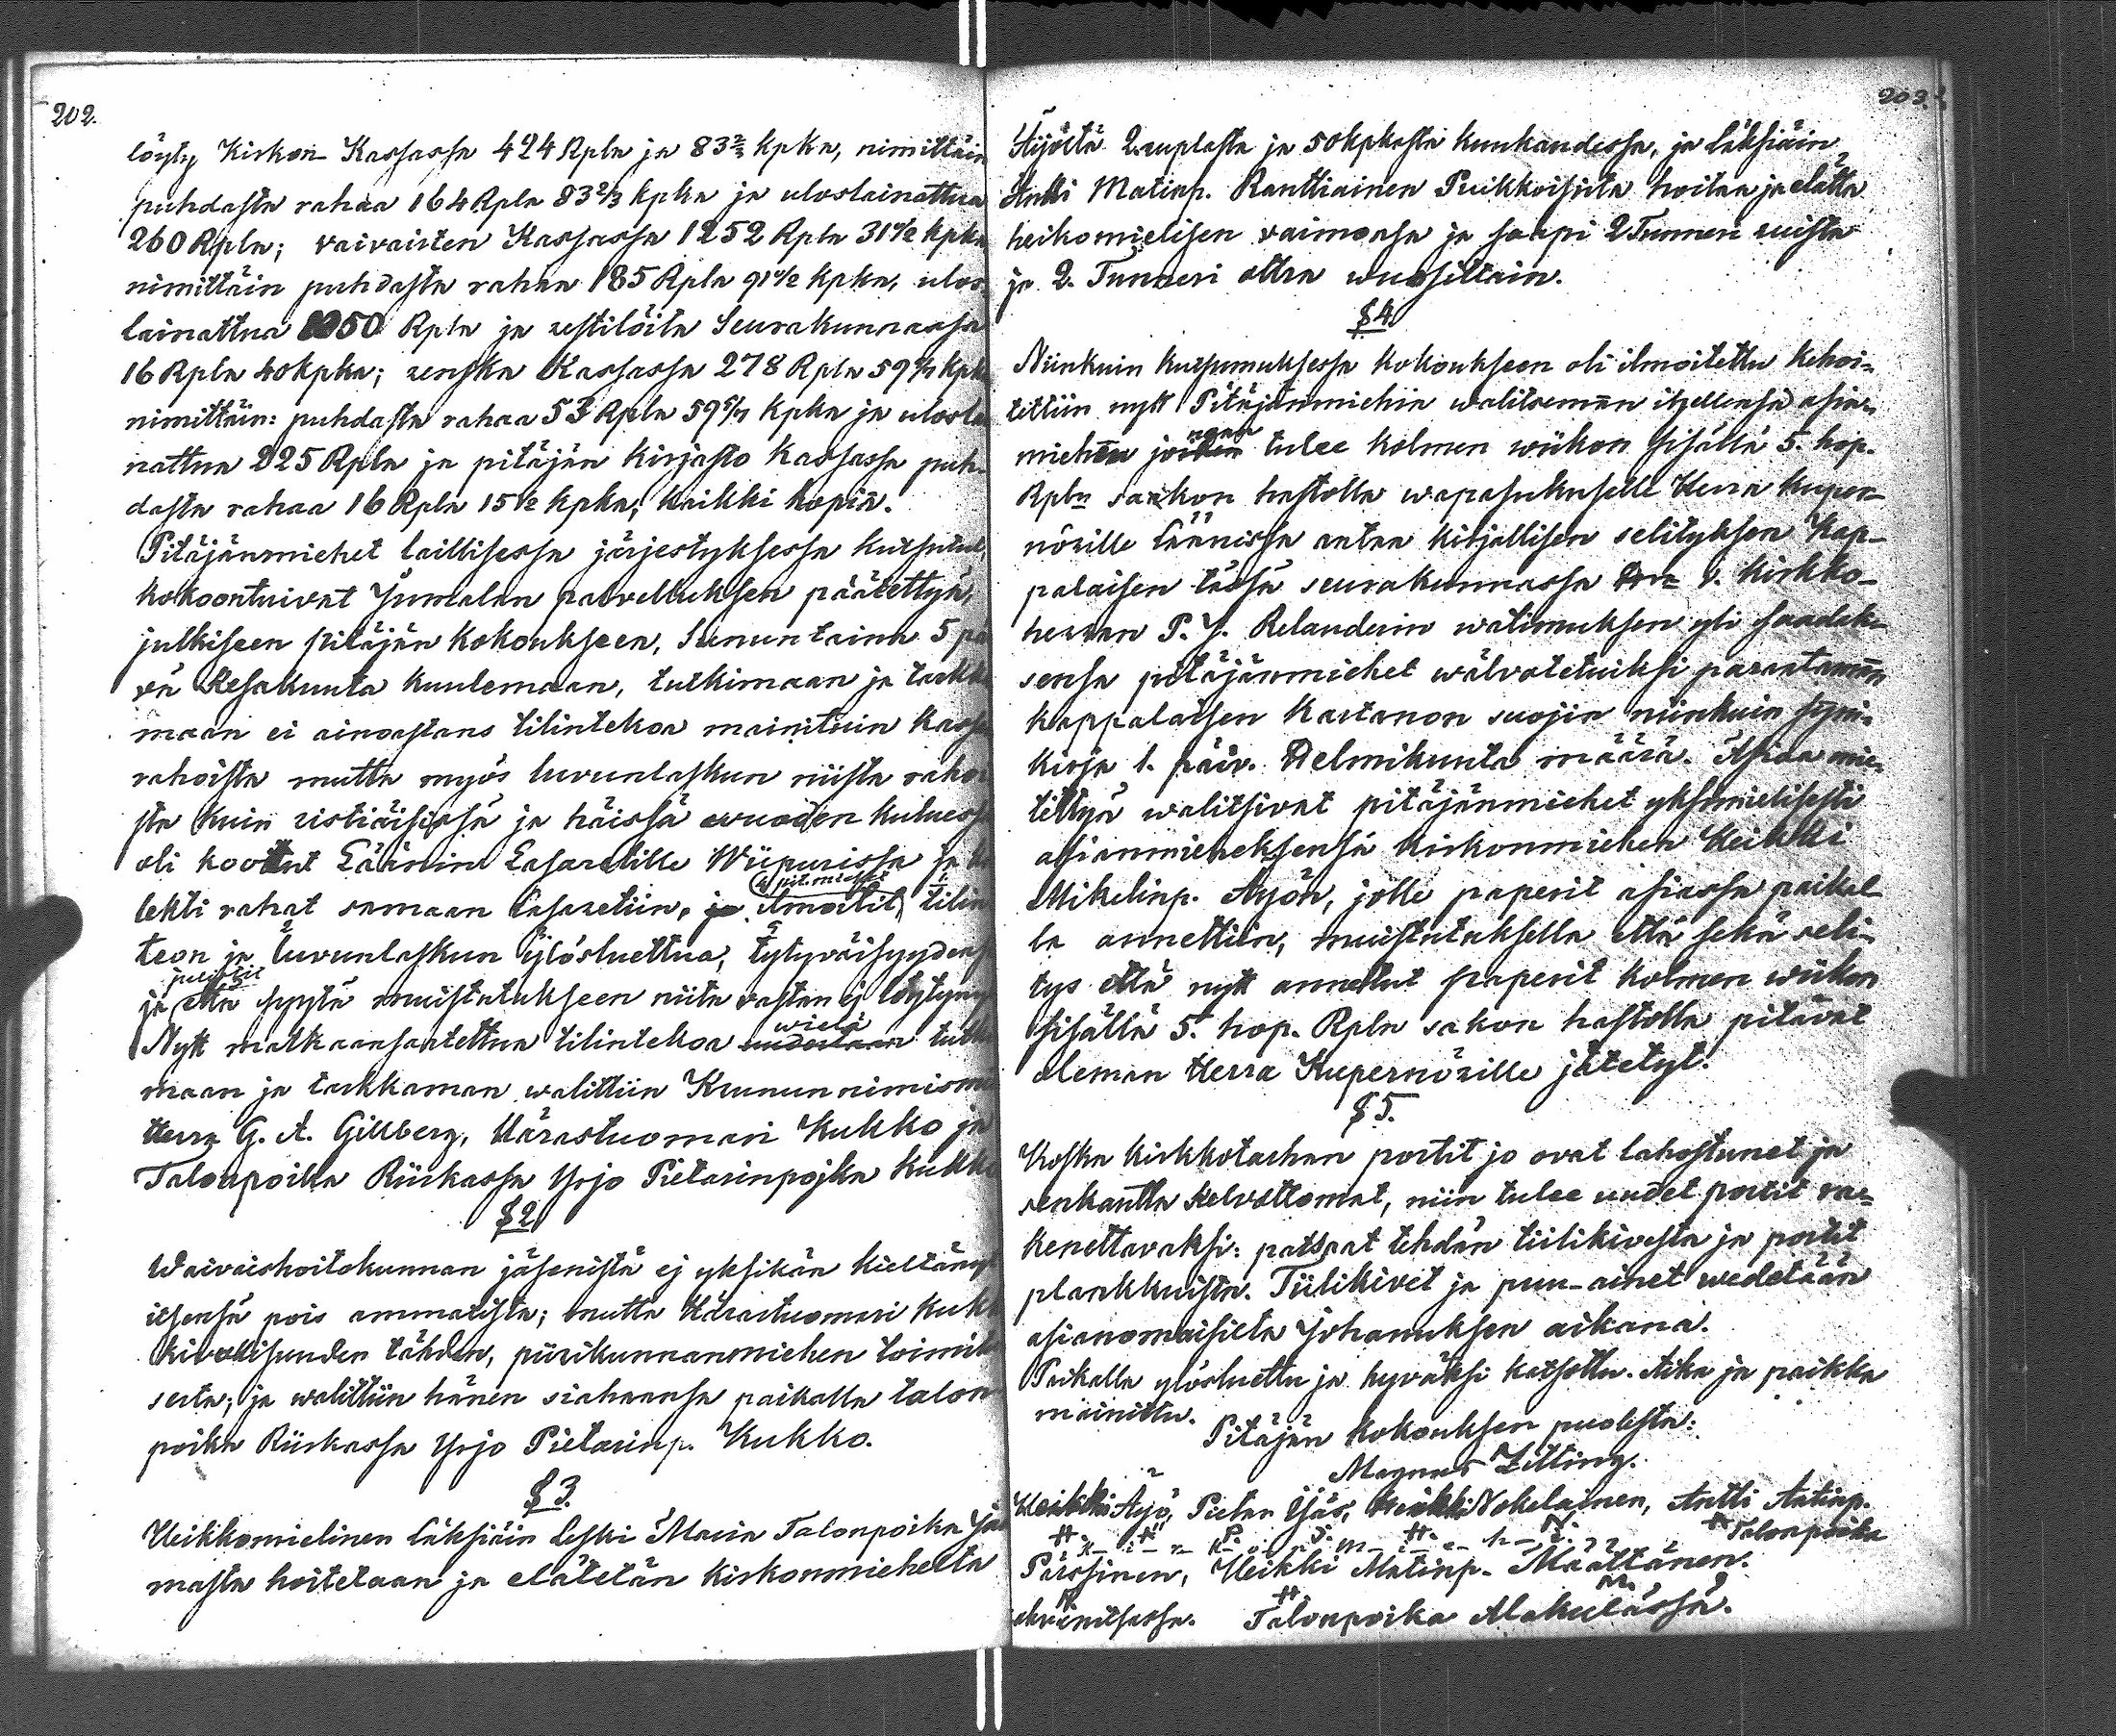 202.
löyty Kirkon Kassassa 424 Rpla ja 83 2/3 kpka, nimittäin
puhdasta rahaa 164 Rpla 83 2/3 kpka ja uloslainattua
260 Rpla; vaivaisten Kassassa 1252 Rpla 31 1/2 kpka
nimittäin puhdasta rahaa 185 Rpla 91 1/2 kpka, ulos-
lainattua 1050 Rpla ja restilöitä Seurakunnassa
16 Rpla 40 kpka; Kassassa 278 Rpla 59 5/7 kpka
nimittäin: puhdasta rahaa 53 Rpla 59 5/7 Kpka ja ulosla
nattua 225 Rpla ja pitäjän Kirjasto Kassassa puh-
dasta rahaa 16 Rpla 15 1/2 kpka; kaikki hopia.
Pitäjänmiehet laillisessa järjestyksessä kutsutut,
kokoontuivat Jumalan palvelluksen päätettyä,
julkiseen pitäjän kokoukseen, Sunnuntaina 5 pä
vä Kesäkuuta kuulemaan, tutkimaan ja tarkka
maan ei ainoastans tilintekoa mainituin kassa
rahoista mutta myös luvunlaskun niistä raho
sta kuin ristiäisissä ja häissä wuoden kuluessa
oli koottut Läänin Lasaretille Wiipurissa ja
lekti rahat samaan Lasaretiin, ja pit.miehet ilmoitit tilin
teon ja luvunlaskun ylösluettua, tytyväisyydens
julistit
ja että syytä muistutukseen niitä vastan ej löytyny
Nytt matkaansaatettua tilintekoa uudestaan wielä tutki
maan ja tarkkaman walittiin Krunun nimismi
Herra G. A. Gillberg, Kärästuomari Kukko ja
Talonpoika Riiskassa Yrjo Pietarinpojka Kukko
§ 2
Waivaishoitokunnan jäsenistä ej yksikän kieltäny
itsensä pois ammatista; mutta Kärästuomari Kukk
kivulisunden tähden, piirikunnanmiehen toimit
sesta; ja walittiin hänen siahansa paikalla talon
poika Riiskassa Yrjo Pietarinp. Kukko.
§ 3.
Heikkomielinen Läksiäin Leski Maria Talonpoika
masta hoitetaan ja elätetän Kirkonmieheltä
203.
Äyjöltä 2 ruplasta ja 50 kpkasta kuukaudessa, ja Läksiäin
Antti Matinp. Ranttiainen Puikkoisista hoitaa ja elättä
heikomielisen vaimonsa ja saapi 2 Tunneri ruista
ja 2. Tunneri ottra wuosittain.
§ 4
Niinkuin kutsumuksessa kokoukseen oli ilmoitettu kehoi-
tettiin nytt Pitäjänmiehiä walitsemän itsellensä asia-
miehen jonnan tulee kolmen wiikon sisällä 5. hop.
Rpln sakon hastolla wapasukuselle Herra Kuper-
nörille Läänissä antaa kirjallisen selityksen Kap-
palaisen tässä seurakunnassa v. kirkko-
herran P. J. Relanderin walituksen yli saadak-
sensa pitäjänmiehet wälvotetuiksi parantamän
kappalaisen kartanon suojia niinkuin syni-
kirja 1. päiv. Helmikuuta määrä. Asiaa mie-
tittyä walitsivat pitäjänmiehet yksimielisesti
asianmieheksensä kirkonmiehen Heikki
Mikelinp. Äyjön, jolle paperit asiassa paikal-
la annettiin, muistutuksella että sekä seli-
tys että nytt annetut paperit kolmen wiikon
sisällä 5. hop. Rpla sakon hastolla pitävät
oleman Herra Kupernörille jätetyt.
§ 5.
Koska kirkkotarhan portit jo ovat lahostunet ja
senkautta kelvottomat, niin tulee uudet portit ra-
kenettavaksi: patsaat tehdän tiilikivestä ja portit
plankkuista. Tiilikivet ja puu-ainet wedetään
asianomaisilta Johanuksen aikana.
Paikalla ylösluettu ja hyväksi katsottu. Aika ja paikka
mainittu.
Pitäjän kokouksen puolesta:
Magnus Zitting.
Heikki Äyjö, Pietari Yjäs, Heikki Nokelainen, Antti Antinp.
K i r k o n m i e h i
Talonpoika
Pärssinen, Heikki Matinp. Määttänen.
Talonpoika Alakylässä.